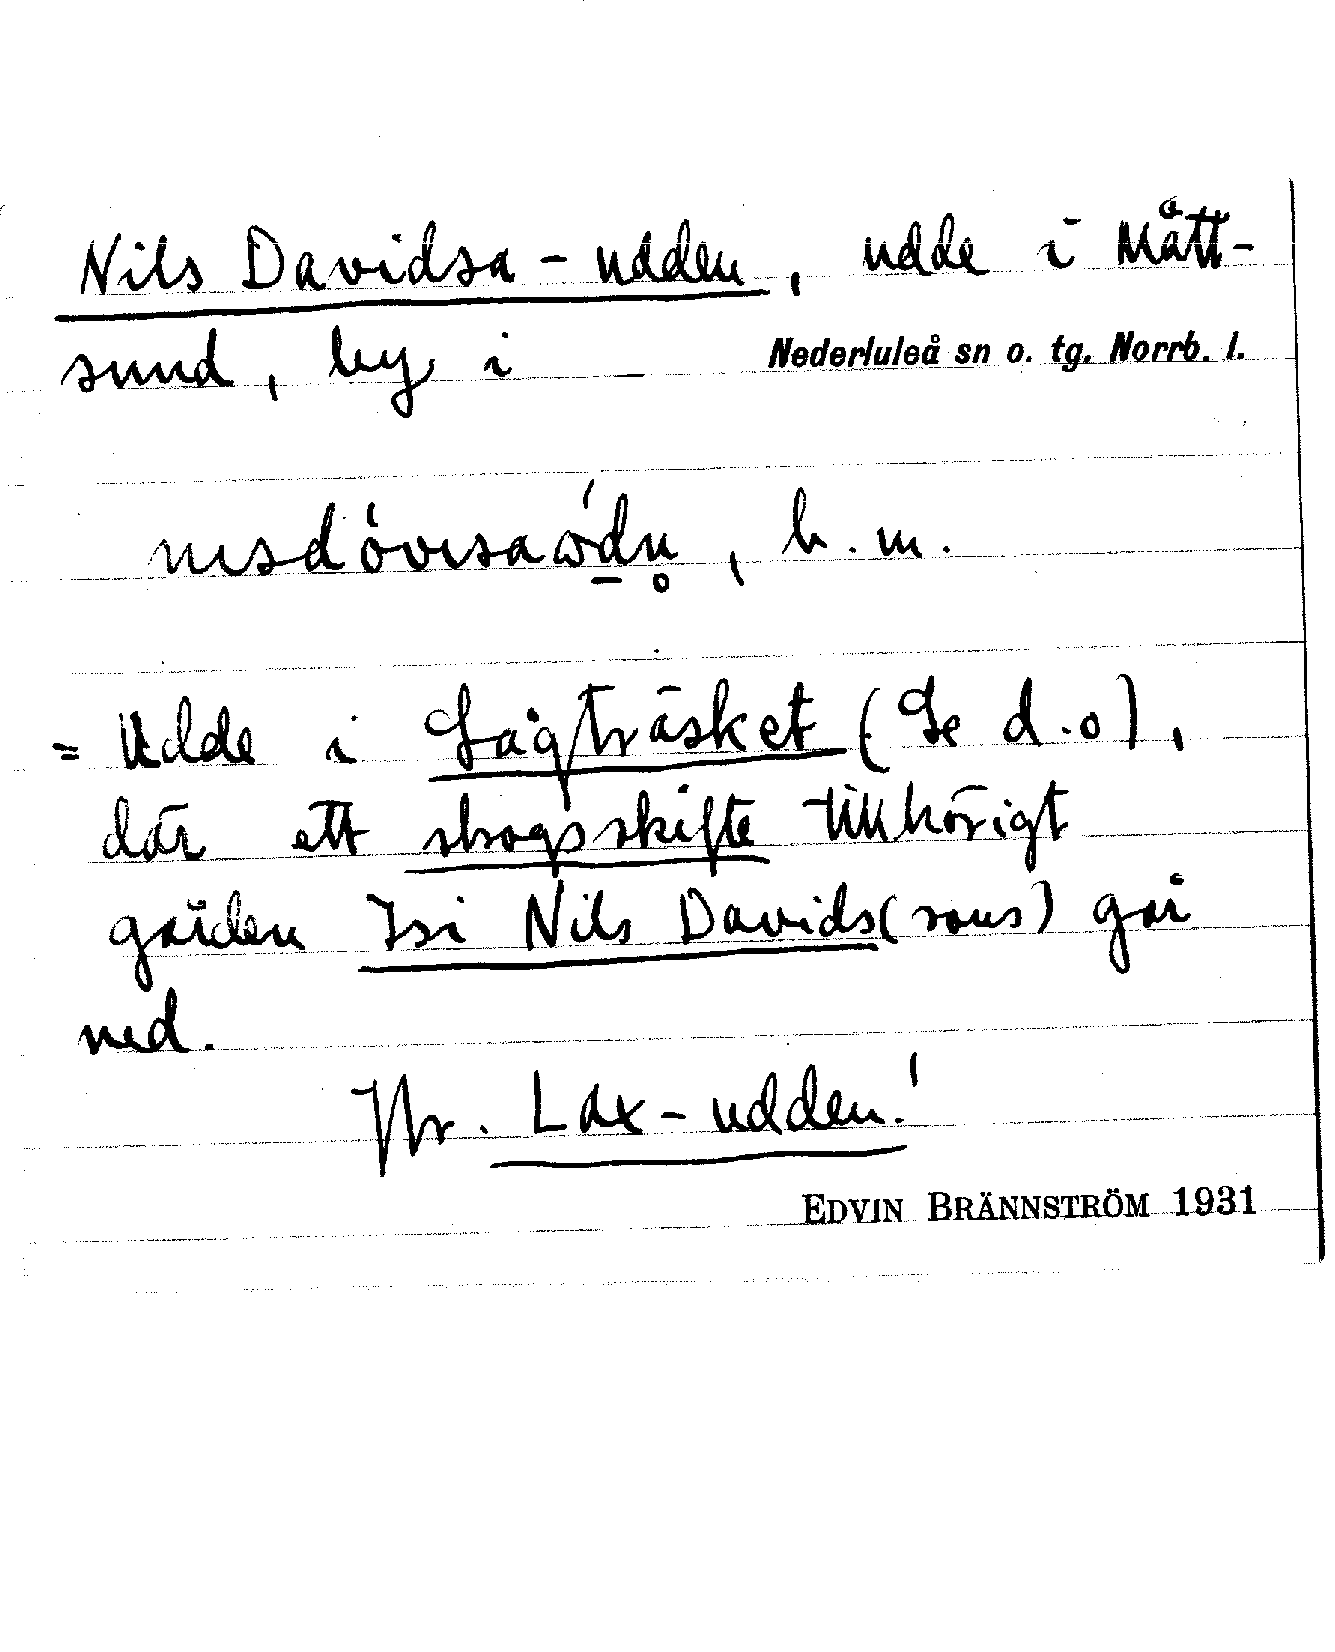 Nils Davidsa-udden, udde i Mått-
sund, by i — Nederluleå sn o. tg. Norrb. l.
b. m.
= Udde i Sågträsket (Se d.o),
där ett skogsskifte tillhörigt
gården Isi Nils Davids(sons) går
ned.
Jfr. Lax-udden!
EDVIN BRÄNNSTRÖM 1931